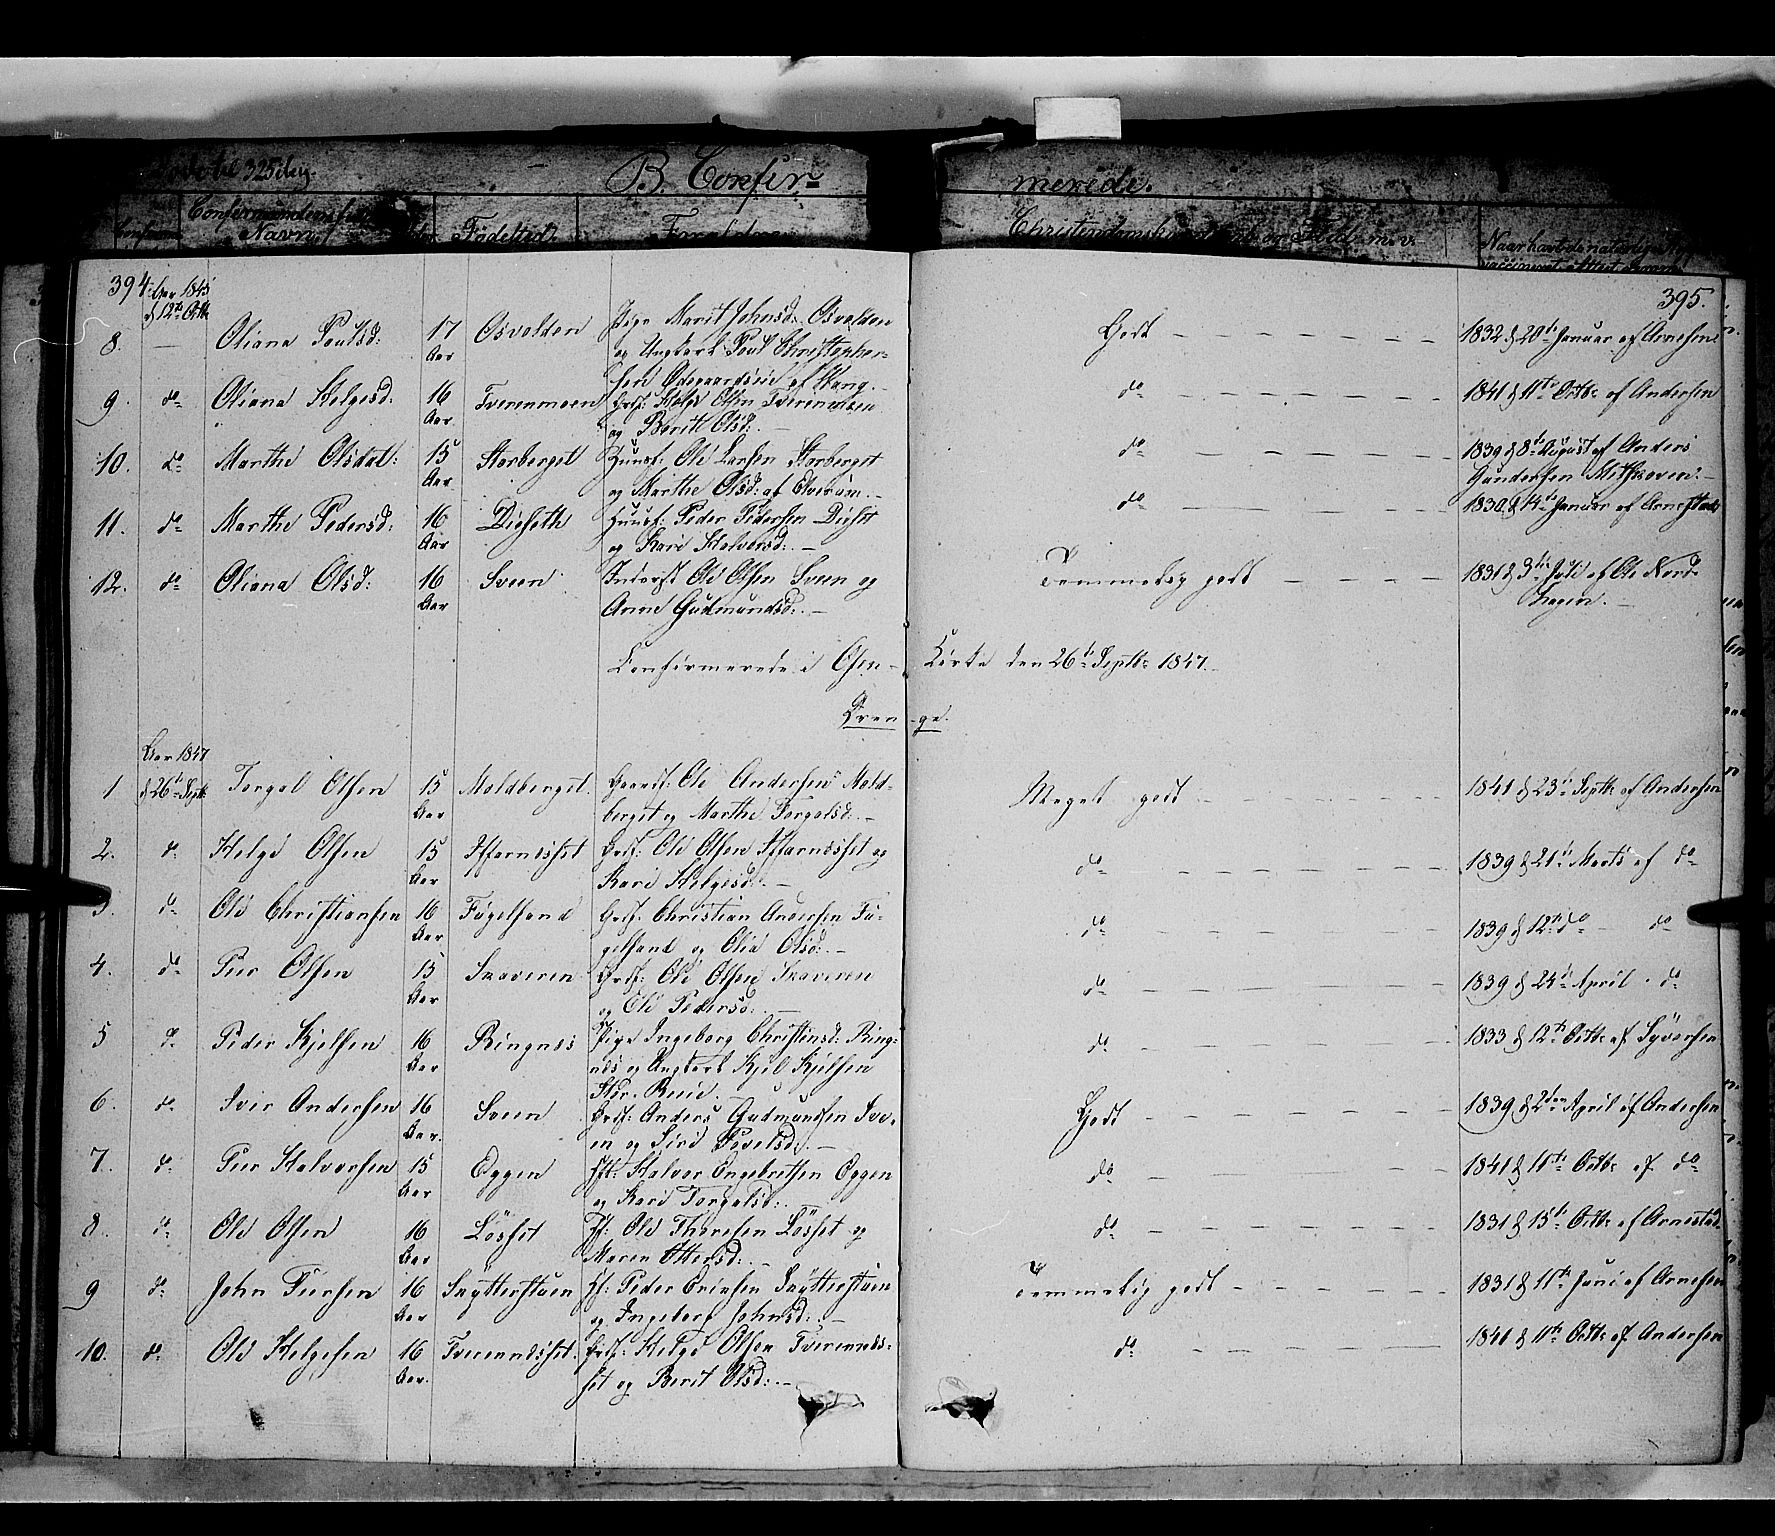 325
B. Confir-
merede.
Confirmandens
Navn
Fødested
Forældre
Christendomskundskab og Flid m.v.
Naar havt de naturlige Kopper
vaccineret
394
395.
Aar 1845
d 12te Octbr
8. — Oliana Poulsd: 17 Aar Osvolden Pige Marit Johnsd: Osvolden
og Ungkarl Poul Christopher-
sen Ødegaardseie af Wang. —
Godt 1832 d 20de Januar af Arnesen
9. do Oliana Helgesd: 16 Aar Tverenmoen Grdf: Helge Olsen Tverenmoen
og Berit Olsd: —
do 1841 d 11te Octbr af Andersen
10. do Marthe Olsdat: 15 Aar Storberget Huusf: Ole Larsen Storberget
og Marthe Olsd: af Elverum. —
do 1839 d 8de August af Anders
Gundersen
11. do Marthe Pedersd: 16 Aar Diseth Huusf: Peder Pedersen Diset
og Kari Halvorsd: —
do 1830 d 14de Januar af Arnestad
12. do Oliana Olsd: 16 Aar Sveen Inderst Ole Olsen Sveen og
Anne Gudmundsd: —
Temmelig godt 1831 d 3die Juli af Ole Nord-
hagen. —
Confirmerede i Osen — Kirke den 26de Septbr 1847.
Dren-ge.
Aar 1847
d 26de Septbr
1 Torgal Olsen 15 Aar Moldberget. Gaardf: Ole Andersen Mold-
berget og Marthe Torgalsd: —
Meget godt 1841 d 23de Septbr af Andersen
2. do Helge Olsen 15 Aar Hfarnesset Grdf: Ole Olsen Hfarnesset og
Kari Helgesd: —
do 1839 d 21de Marts af do
3. do Ole Christiansen 16 Aar Fugelsand Grdf: Christian Andersen Fu-
gelsand og Olia Olsd: —
do 1839 d 12te do do
4. do Peer Olsen 15 Aar Skaveren Grdf: Ole Olsen Skaveren
og Pedersd: —
do 1839 d 24de April do
5 do Peder Kjelsen 16 Aar Ringnes Pige Ingeborg Christensd: Ring-
nes og Ungkarl Kjel Kjelsen
do 1833 d 12te Octbr af Syversen
6. do Iver Andersen 16 Aar. Sveen Grdf: Anders Gudmundsen Sve-
en og Siri Povelsd: —
Godt 1839 d 2den April af Andersen
7. do Peer Halvorsen 15 Aar Eggen Halvor Engebretsen Eggen
og Kari Torgalsd: —
do 1841 d 11te Octbr af do
8. do Ole Olsen 16 Aar Løsset Ole Thoresen Løsset og
Maren Ottersd: —
do 1831 d 15de Octbr af Arnestad
9 do John Peersen 16 Aar Skytterstuen Peder Erichsen Skytterstuen
og Ingeborg Johnsd: —
Temmelig godt 1831 d 11te Juni af Arnesen
10. do Ole Helgesen 16 Aar. Tverrenesset. Grdf: Helge Olsen Tverrenes-
set og Berit Olsd: —
do 1841 d 11te Octbr af Andersen